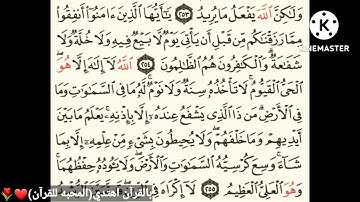 وَلَٰكِنَّ ٱللَّهَ يَفْعَلُ مَا يُرِيدُ ٢٥٣ يَٰٓأَيُّهَا ٱلَّذِينَ ءَامَنُوٓا۟ أَنفِقُوا۟
مِمَّا رَزَقْنَٰكُم مِّن قَبْلِ أَن يَأْتِىَ يَوْمٌ لَّا بَيْعٌ فِيهِ وَلَا خُلَّةٌ وَلَا
شَفَٰعَةٌ وَٱلْكَٰفِرُونَ هُمُ ٱلظَّٰلِمُونَ ٢٥٤ ٱللَّهُ لَآ إِلَٰهَ إِلَّا هُوَ
ٱلْحَىُّ ٱلْقَيُّومُ لَا تَأْخُذُهُۥ سِنَةٌ وَلَا نَوْمٌ لَّهُۥ مَا فِى ٱلسَّمَٰوَٰتِ وَمَا
فِى ٱلْأَرْضِ مَن ذَا ٱلَّذِى يَشْفَعُ عِندَهُۥٓ إِلَّا بِإِذْنِهِۦ يَعْلَمُ مَا بَيْنَ
أَيْدِيهِمْ وَمَا خَلْفَهُمْ وَلَا يُحِيطُونَ بِشَىْءٍ مِّنْ عِلْمِهِۦٓ إِلَّا بِمَا
شَآءَ وَسِعَ كُرْسِيُّهُ ٱلسَّمَٰوَٰتِ وَٱلْأَرْضَ وَلَا يَـُٔودُهُۥ حِفْظُهُمَا
وَهُوَ ٱلْعَلِىُّ ٱلْعَظِيمُ ٢٥٥ لَآ إِكْرَاهَ فِى
Made with
KINEMASTER
بالقرآن اهتدي(المحبه للقرآن)